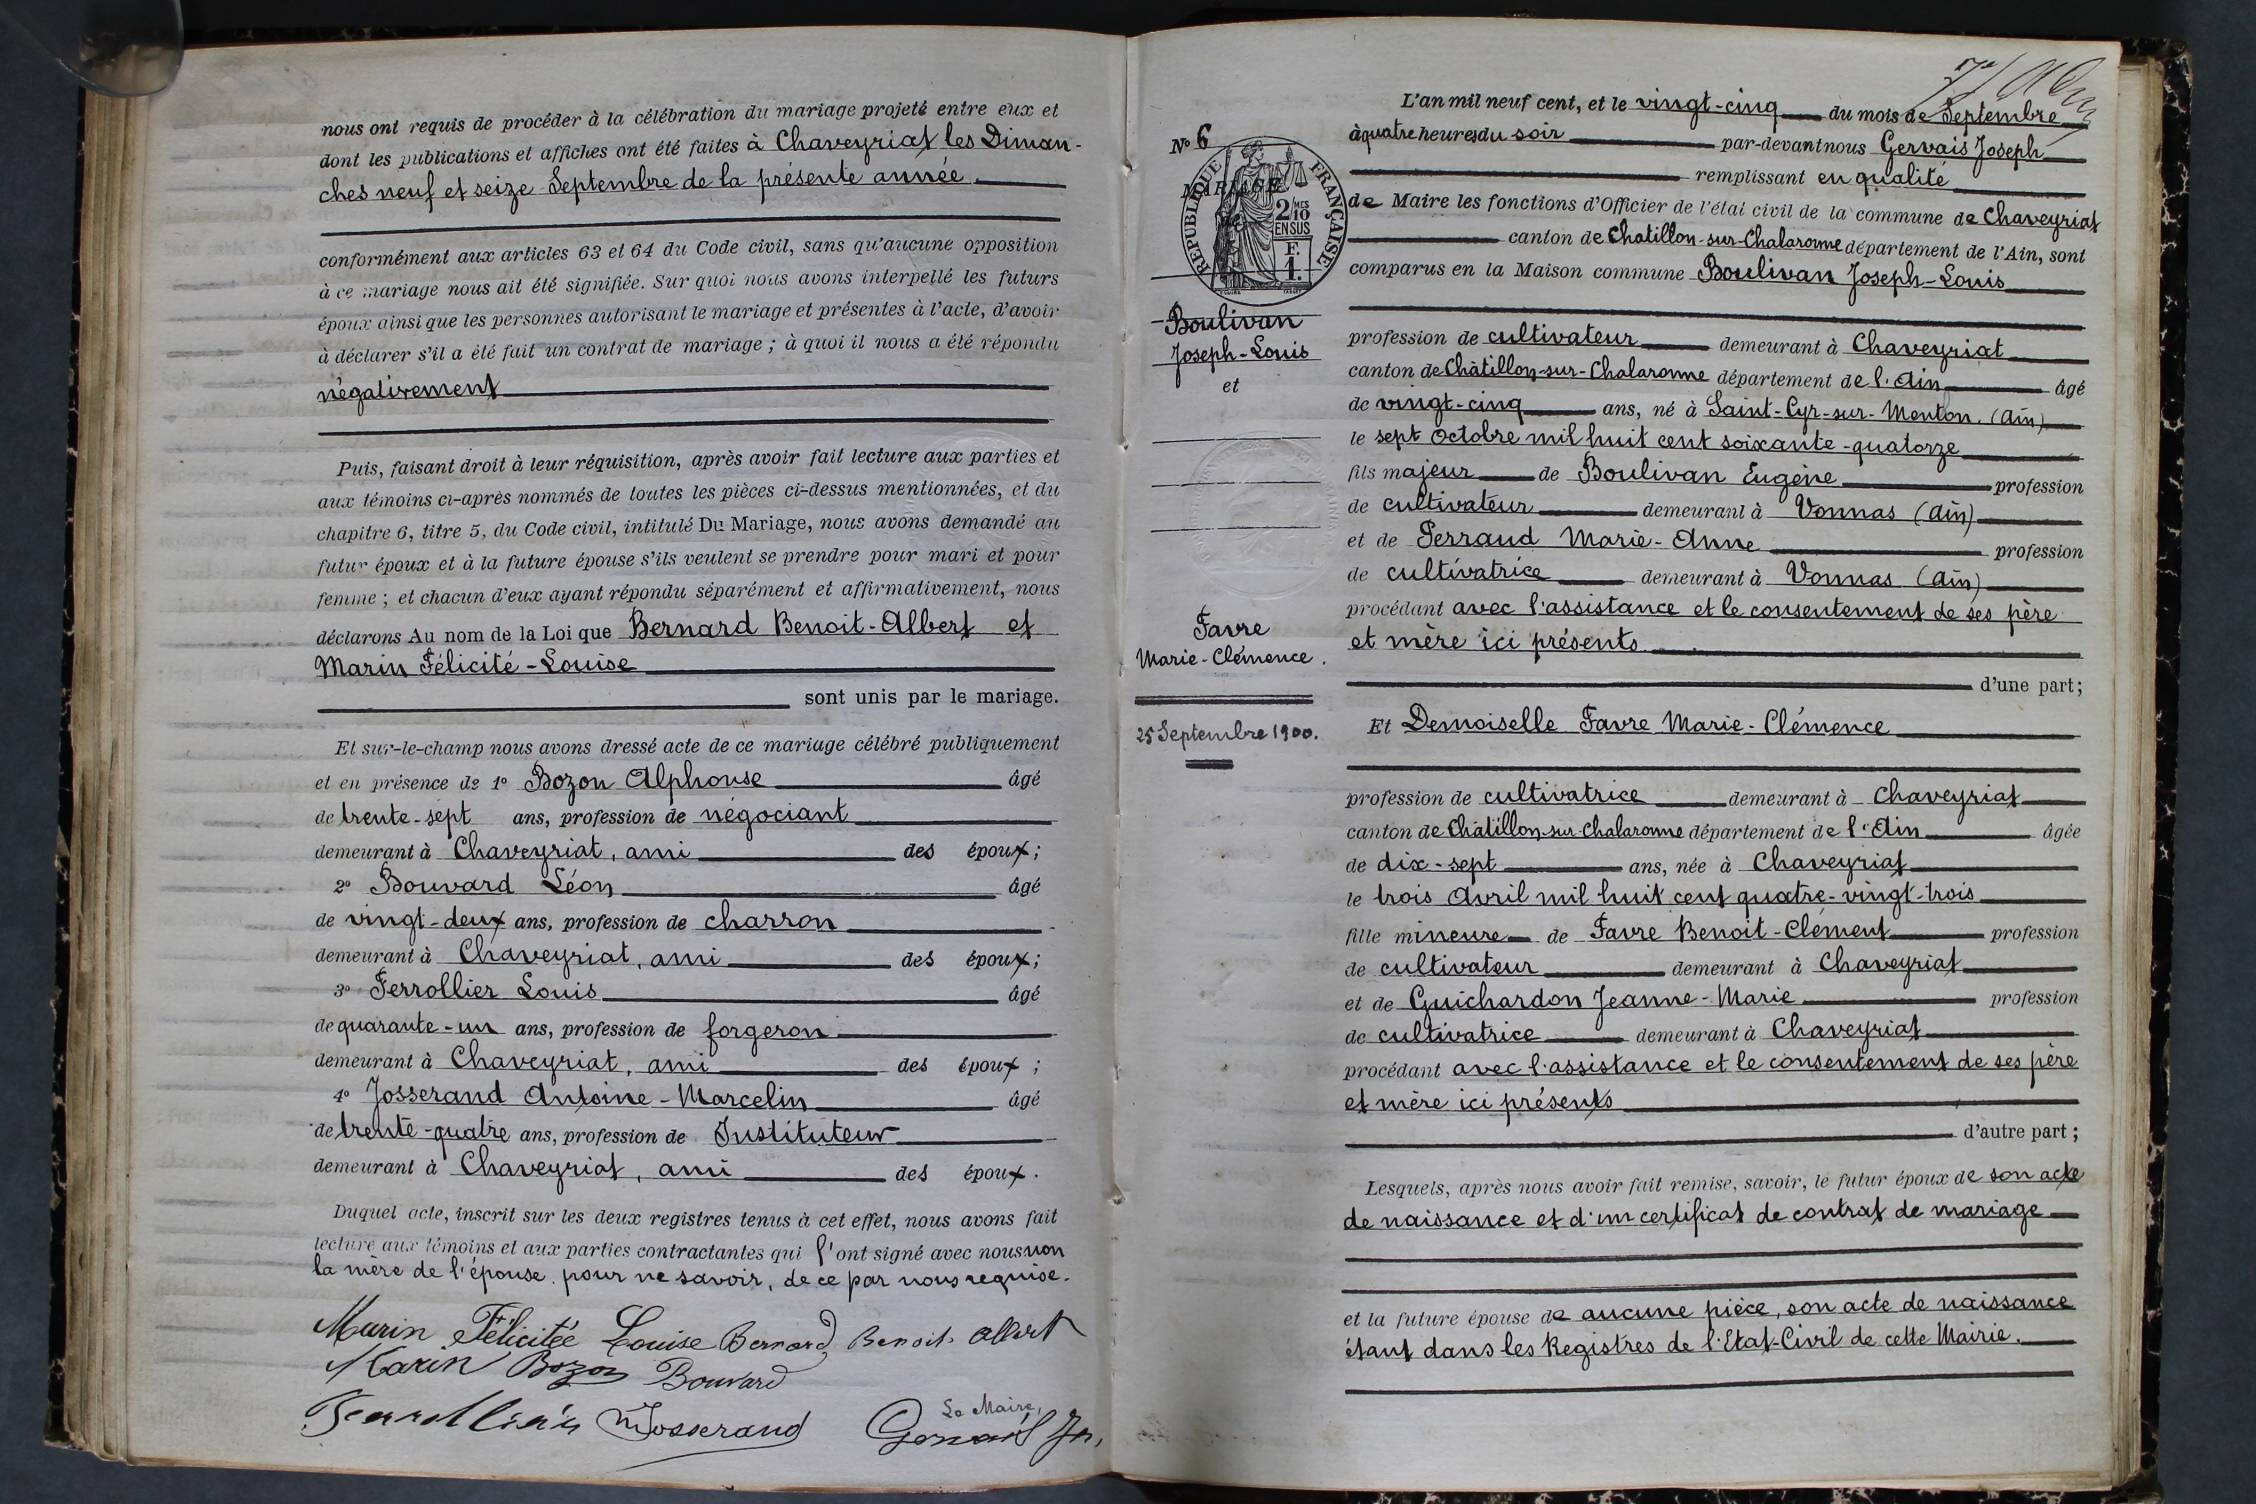 nous ont requis de procéder à la célébration du mariage projeté entre eux et
dont les publications et affiches ont été faites à Chaveyriat les Diman-
ches neuf et seize Septembre de la présente année.
conformément aux articles 63 et 64 du Code civil, sans qu'aucune opposition
à ce mariage nous ait été signifiée. Sur quoi nous avons interpellé les futurs
époux ainsi que les personnes autorisant le mariage et présentes à l'acte, d'avoir
à déclarer s'il a été fait un contrat de mariage ; à quoi il nous a été répondu
négativement
Puis, faisant droit à leur réquisition, après avoir fait lecture aux parties et
aux témoins ci-après nommés de toutes les pièces ci-dessus mentionnées, et du
chapitre 6, titre 5, du Code civil, intitulé Du Mariage, nous avons demandé au
futur époux et à la future épouse s'ils veulent se prendre pour mari et pour
femme ; et chacun d'eux ayant répondu séparément et affirmativement, nous
déclarons Au nom de la Loi que Bernard Benoit-Albert et
Marin Félicité-Louise
sont unis par le mariage.
Et sur-le-champ nous avons dressé acte de ce mariage célébré publiquement
et en présence de 1º Bozon Alphonse âgé
de trente-sept ans, profession de négociant
demeurant à Chaveyriat, ami des époux ;
2º Bouvard Léon âgé
de vingt-deux ans, profession de charron
demeurant à Chaveyriat, ami des époux ;
3º Ferrollier Louis âgé
de quarante-un ans, profession de forgeron
demeurant à Chaveyriat, ami des époux ;
4º Josserand Antoine-Marcelin âgé
de trente-quatre ans, profession de Instituteur
demeurant à Chaveyriat, ami des époux.
Duquel acte, inscrit sur les deux registres tenus à cet effet, nous avons fait
lecture aux témoins et aux parties contractantes qui l'ont signé avec nous non
la mère de l'épouse, pour ne savoir, de ce par nous requise.
Marin Félicitée Louise Bernard Benoit Albert
Marin Bozon Bouvard
Josserand
Le Maire,
Gervais Jh.
Nº 6
MARIAGE
RÉPUBLIQUE FRANÇAISE
2/10MES
EN SUS
F.
1.
Boulivan
Joseph-Louis
et
Favre
Marie-Clémence.
25 Septembre 1900.
L'an mil neuf cent, et le vingt-cinq du mois de Septembre
à quatre heures du soir par-devant nous Gervais Joseph
remplissant en qualité
de Maire les fonctions d'Officier de l'état civil de la commune de Chaveyriat
canton de Chatillon-sur-Chalaronne département de l'Ain, sont
comparus en la Maison commune Boulivan Joseph-Louis
profession de cultivateur demeurant à Chaveyriat
canton de Châtillon-sur-Chalaronne département de l'Ain âgé
de vingt-cinq ans, né à Saint-Cyr-sur-Menton. (Ain)
le sept Octobre mil huit cent soixante-quatorze
fils majeur de Boulivan Eugène profession
de cultivateur demeurant à Vonnas (Ain)
et de Perraud Marie-Anne profession
de cultivatrice demeurant à Vonnas (Ain)
procédant avec l'assistance et le consentement de ses père
et mère ici présents
d'une part ;
Et Demoiselle Favre Marie-Clémence
profession de cultivatrice demeurant à Chaveyriat
canton de Châtillon-sur-Chalaronne département de l'Ain âgée
de dix-sept ans, née à Chaveyriat
le trois Avril mil huit cent quatre-vingt-trois
fille mineure de Favre Benoit-Clément profession
de cultivateur demeurant à Chaveyriat
et de Guichardon Jeanne-Marie profession
de cultivatrice demeurant à Chaveyriat
procédant avec l'assistance et le consentement de ses père
et mère ici présents
d'autre part ;
Lesquels, après nous avoir fait remise, savoir, le futur époux de son acte
de naissance et d'un certificat de contrat de mariage
et la future épouse de aucune pièce, son acte de naissance
étant dans les Registres de l'Etat-Civil de cette Mairie.